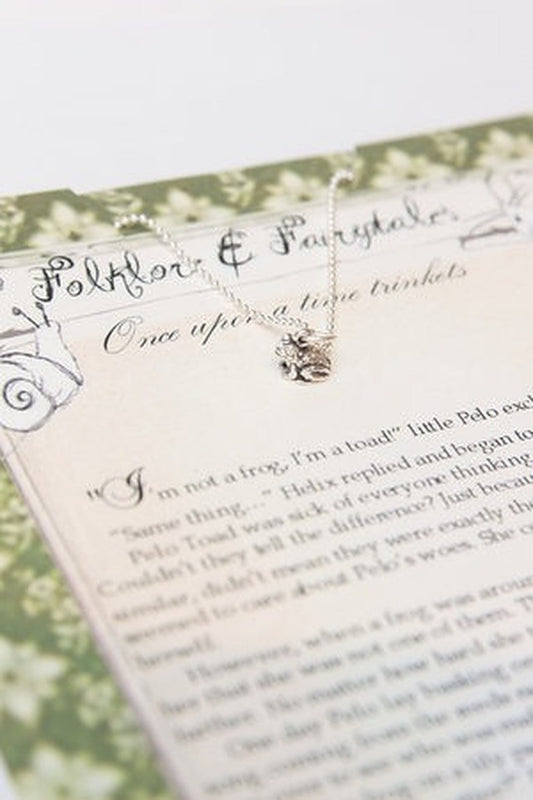 Folklore & Fairytales
Once upon a time trinkets
"I'm not a frog, I'm a toad!" little Pelo
"Same thing..." Helix replied and began to
Pelo Toad was sick of everyone thinking
Couldn't they tell the difference? Just
similar, didn't mean they were exactly the
seemed to care about Pelo's woes. She
herself.
However, when a frog was
her that she was not one of them.
further. No matter how hard she
One day Pelo lay basking
song coming from the reeds